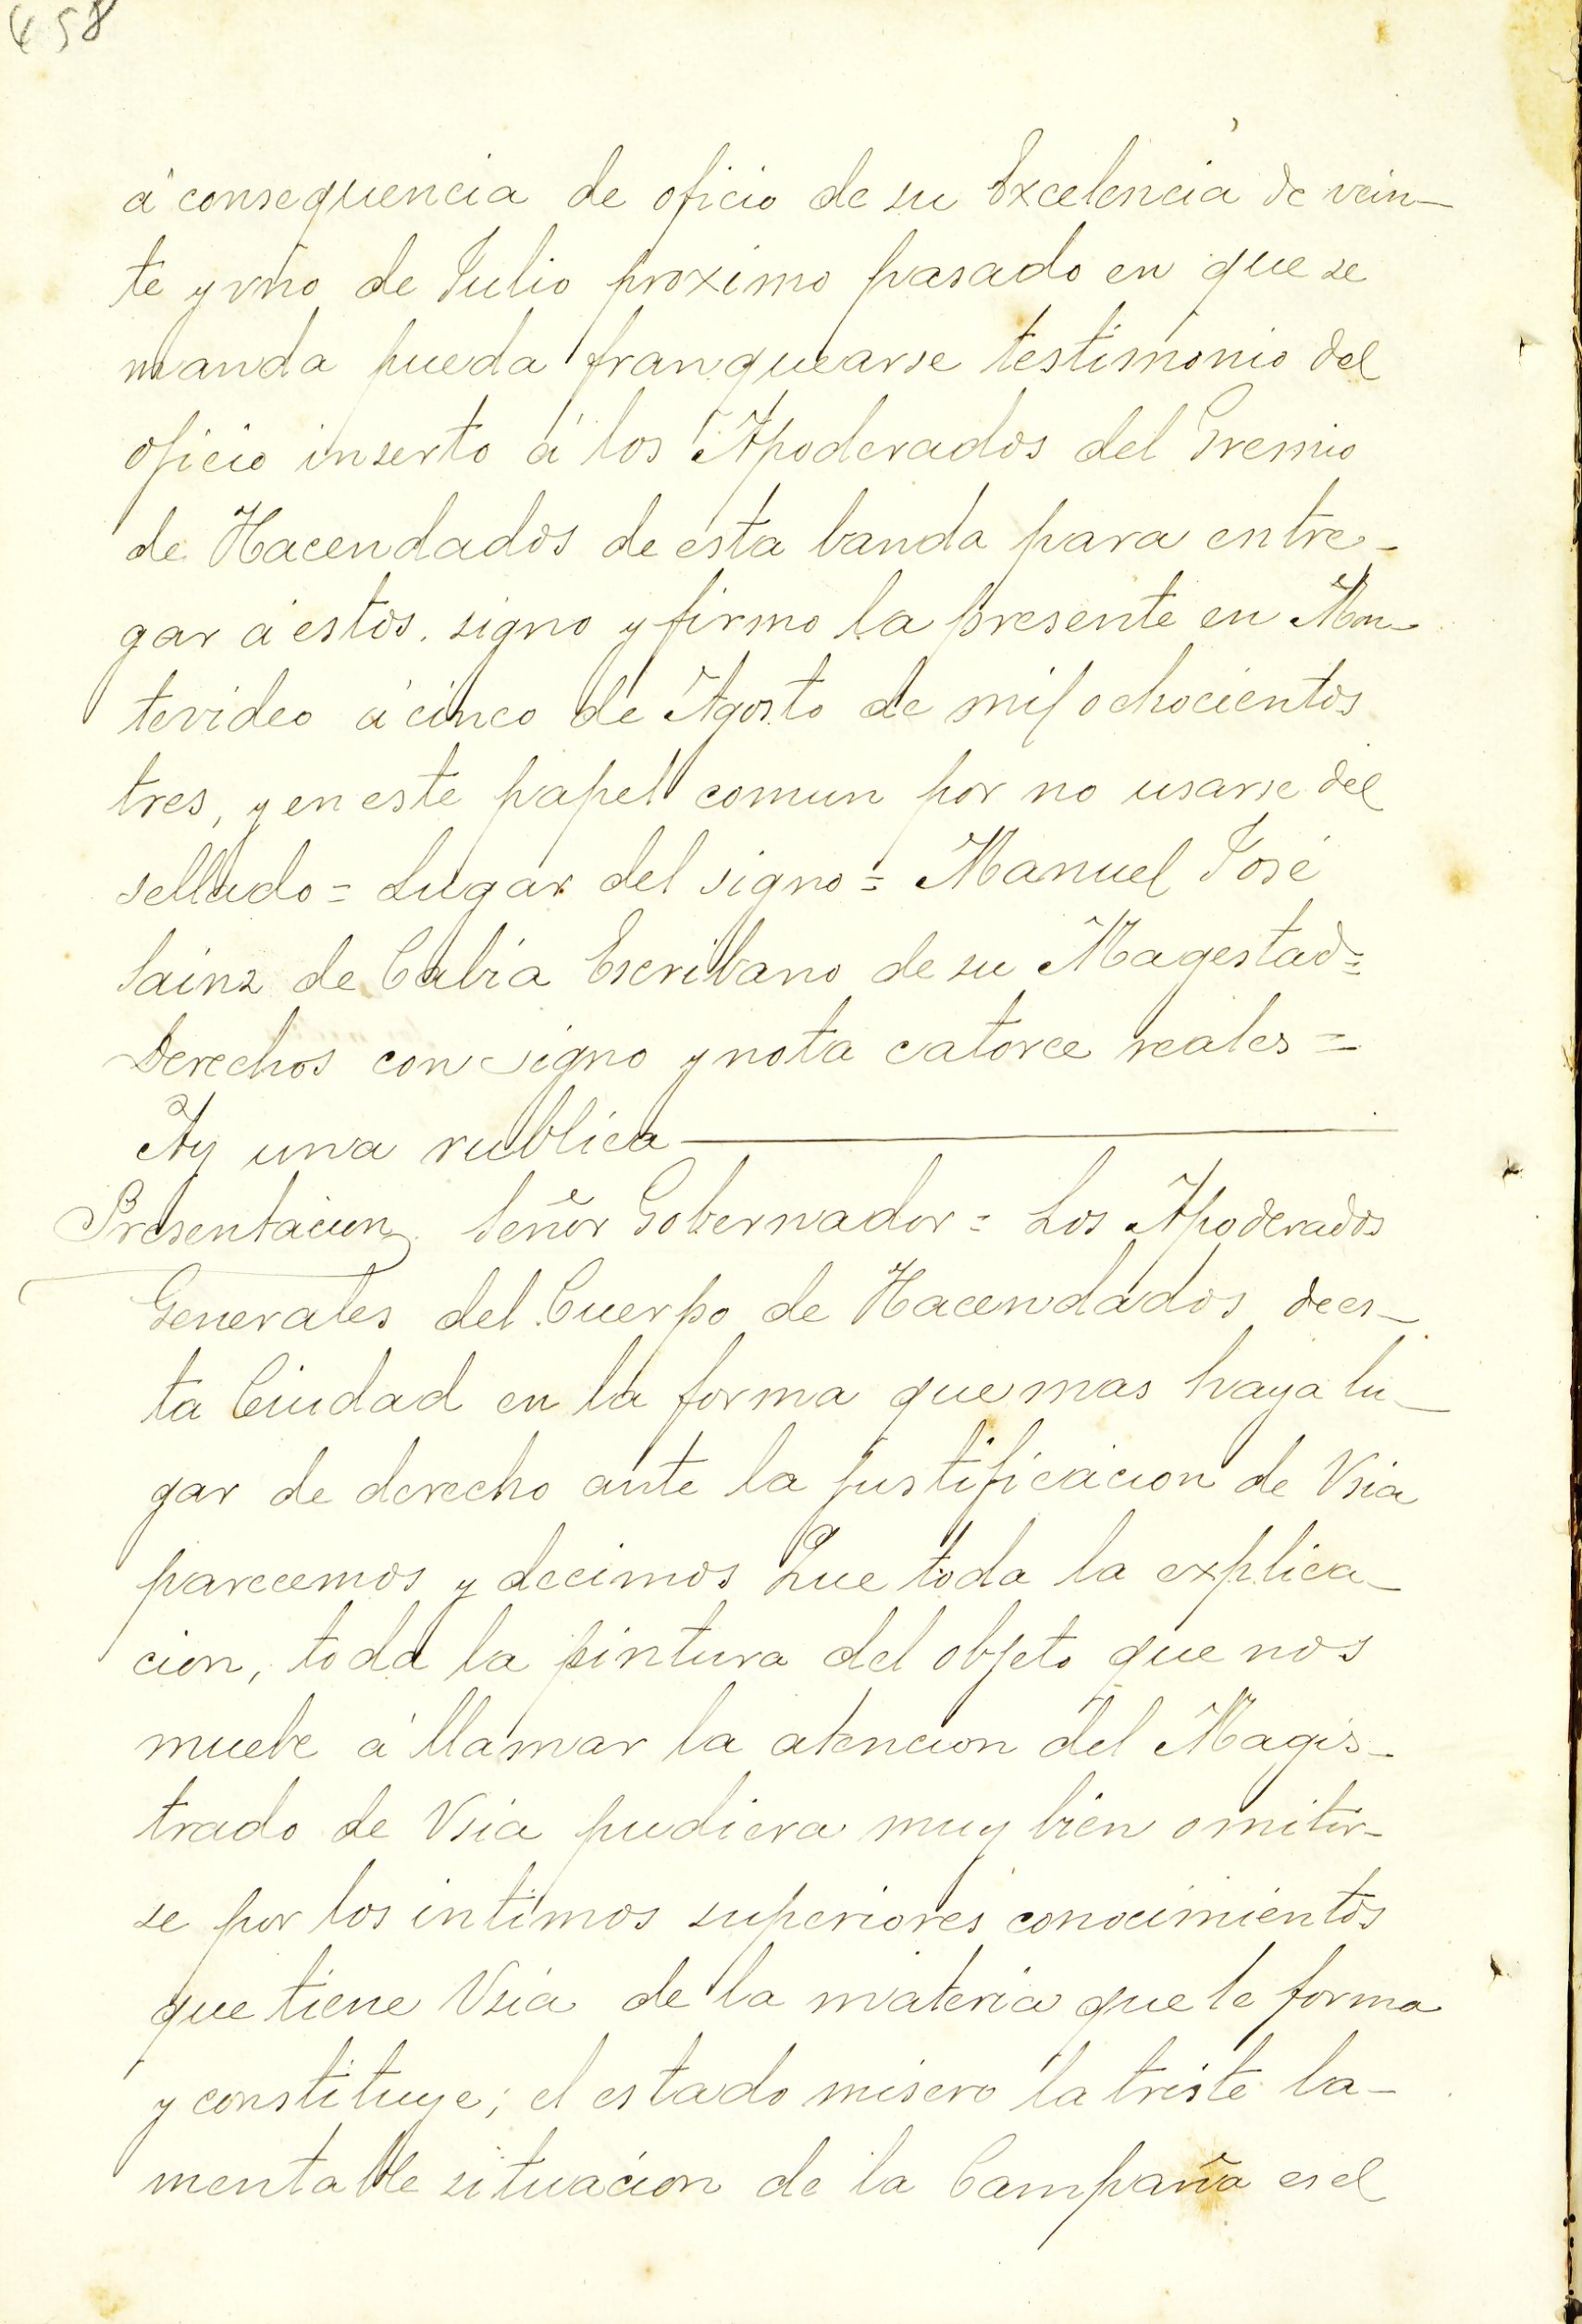 458
á consequencia de oficio de su Excelencia de vein-
te y vno de Julio proximo pasado en que se
manda pueda franquearse testimonio del
oficio inserto á los Apoderados del Gremio
de Hacendados de esta banda para entre-
gar á estos. signo y firmo la presente en Mon-
tevideo á cinco de Agosto de mil ochocientos
tres, y en este papel comun por no usarse del
sellado = Lugar del signo = Manuel José
Sainz de Cabia Escribano de su Magestad =
Derechos con signo y nota catorce reales =
Ay una rublica
Presentacion Señor Gobernador = Los Apoderados
Generales del Cuerpo de Hacendados de es-
ta Ciudad en la forma que mas haya lu-
gar de derecho ante la justificacion de Vsia
parecemos y decimos Que toda la explica-
cion, toda la pintura del objeto que nos
muebe á llamar la atencion del Magis-
trado de Vsia pudiera muy bien omitir-
se por los intimos superiores conocimientos
que tiene Vsia de la materia que le forma
y constituye; el estado misero la triste la-
mentable situacion de la Campaña es el